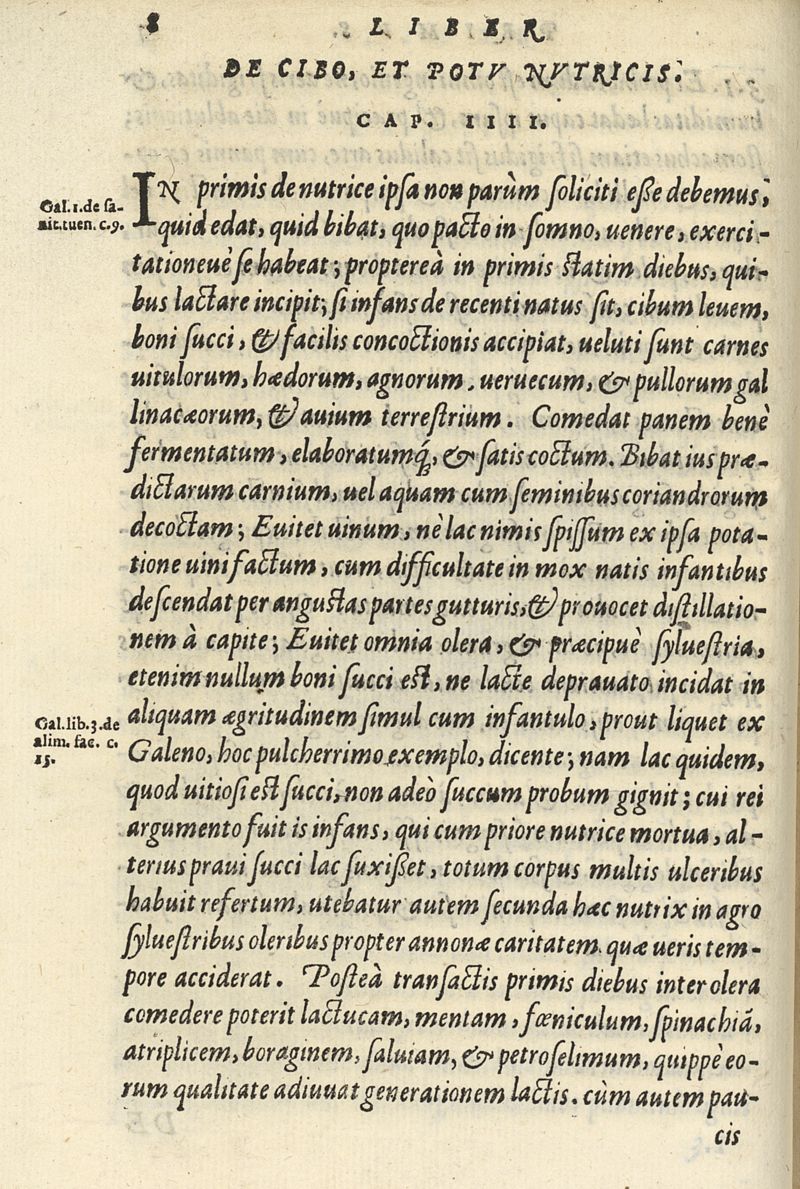 8 LIBER
DE CIBO, ET POTV NVTRICIS.
CAP. IIII.
Gal. 1. de sa-
nit. tuen. c. 9.
IN primis de nutrice ipsa non parùm soliciti eße debemus,
quid edat, quid bibat, quo pacto in somno, uenere, exerci-
tationeuè se habeat; proptereà in primis statim diebus, qui-
bus lactare incipit; si infans de recenti natus sit, cibum leuem,
boni succi, & facilis concoctionis accipiat, ueluti sunt carnes
uitulorum, hædorum, agnorum, ueruecum, & pullorum gal
linacæorum, & auium terrestrium. Comedat panem benè
fermentatum, elaboratumq́;, & satis coctum. Bibat ius præ-
dictarum carnium, uel aquam cum seminibus coriandrorum
decoctam; Euitet uinum, nè lac nimis spissum ex ipsa pota-
tione uini factum, cum difficultate in mox natis infantibus
descendat per angustas partes gutturis, & prouocet distillatio-
nem à capite; Euitet omnia olera, & præcipuè syluestria,
etenim nullum boni succi est, ne lacte deprauato incidat in
Gal. lib. 3. de
alim. fac. c.
15.
aliquam ægritudinem simul cum infantulo, prout liquet ex
Galeno, hoc pulcherrimo exemplo, dicente; nam lac quidem,
quod uitiosi est succi, non adeò succum probum gignit; cui rei
argumento fuit is infans, qui cum priore nutrice mortua, al-
terius praui succi lac suxißet, totum corpus multis ulceribus
habuit refertum, utebatur autem secunda hæc nutrix in agro
syluestribus oleribus propter annonæ caritatem. quæ ueris tem-
pore acciderat. Posteà transactis primis diebus inter olera
comedere poterit lactucam, mentam, fœniculum, spinachiã,
atriplicem, boraginem, saluiam, & petroselimum, quippè eo-
rum qualitate adiuuat generationem lactis. cùm autem pau-
cis